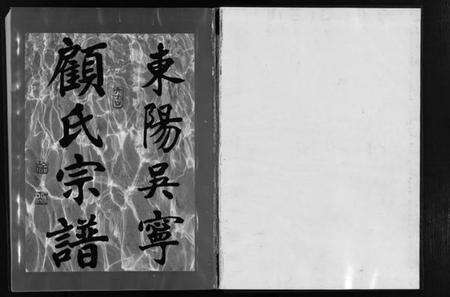 東陽吳寧
顧氏宗譜